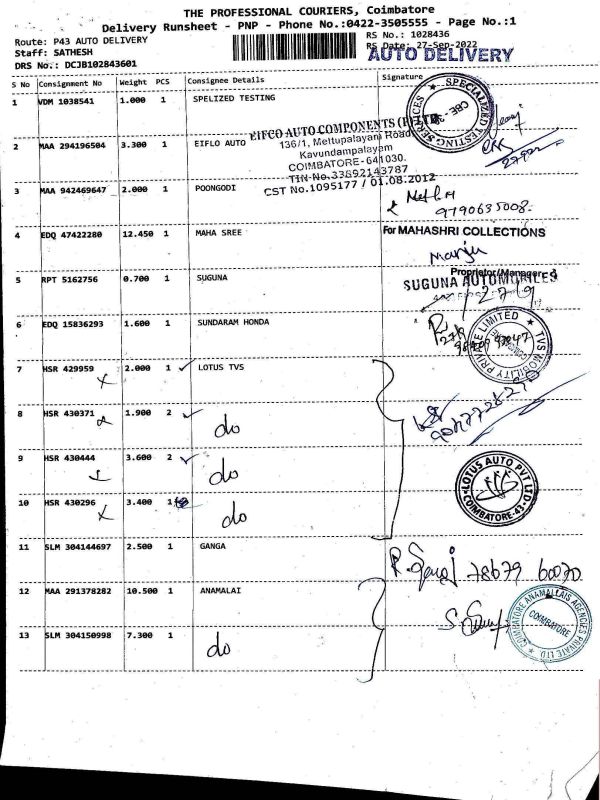 THE PROFESSIONAL COURIERS, Coimbatore
Delivery Runsheet - PNP - Phone No.:0422-3505555 - Page No.:1
Route: P43 AUTO DELIVERY
RS No.: 1028436
Staff: SATHESH
RS Date: 27-Sep-2022
DRS No.: DCJB102843601
AUTO DELIVERY
S No Consignment No Weight PCS Consignee Details Signature
1 VDM 1038541 1.000 1 SPELIZED TESTING
SPECIALIZED TESTING SERVICES
CBE - 38
2 MAA 294196504 3.300 1 EIFLO AUTO
EIFCO AUTO COMPONENTS (I) LTD
136/1, Mettupalayam Road
Kavundampalayam
COIMBATORE-641030.
TIN No.33692143787
CST No.1095177 / 01.08.2012
3 MAA 942469647 2.000 1 POONGODI
9790635008.
4 EDQ 47422280 12.450 1 MAHA SREE
For MAHASHRI COLLECTIONS
Manju
Proprietor/Manager
5 RPT 5162756 0.700 1 SUGUNA
SUGUNA AUTOMOBILES
27/9
6 EDQ 15836293 1.600 1 SUNDARAM HONDA
TVS MOBILITY PRIVATE LIMITED
7 HSR 429959 2.000 1 LOTUS TVS
8 HSR 430371 1.900 2 do
9 HSR 430444 3.600 2 do
LOTUS AUTO PVT LTD
COIMBATORE-43
10 HSR 430296 3.400 1 do
11 SLM 304144697 2.500 1 GANGA
78679 60070
12 MAA 291378282 10.500 1 ANAMALAI
COIMBATORE ANAMALLAIS AGENCIES PRIVATE LTD
COIMBATORE
13 SLM 304150998 7.300 1 do